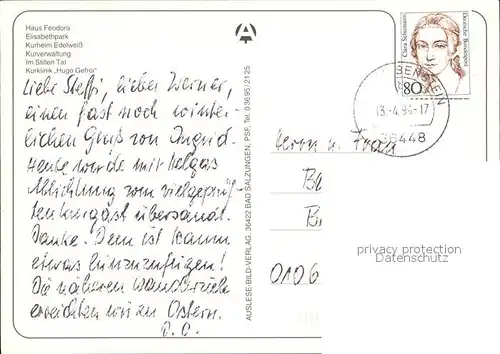 Haus Feodora
Elisabethpark
Kurheim Edelweiß
Kurverwaltung
Im Stillen Tal
Kurklinik „Hugo Gefroi“
Liebe Steffi, lieber Werner,
einen fast noch winter-
lichen Gruß von Ingrid.
Heute wurde mit Helgas
Ablichtung vom vielgeprüf-
ten Kurgast übersandt.
Danke. Dem ist kaum
etwas hinzuzufügen!
Die näheren Wanderziele
erreichten wir zu Ostern.
D. O.
AUSLESE-BILD-VERLAG, 36422 BAD SALZUNGEN, PSF, Tel. 0 36 95 / 21 25
Clara Schumann
Deutsche Bundespost
80
BENSTEIN
13.-4.94-17
36448
Herrn u. Frau
B
B
0106
privacy protection
Datenschutz